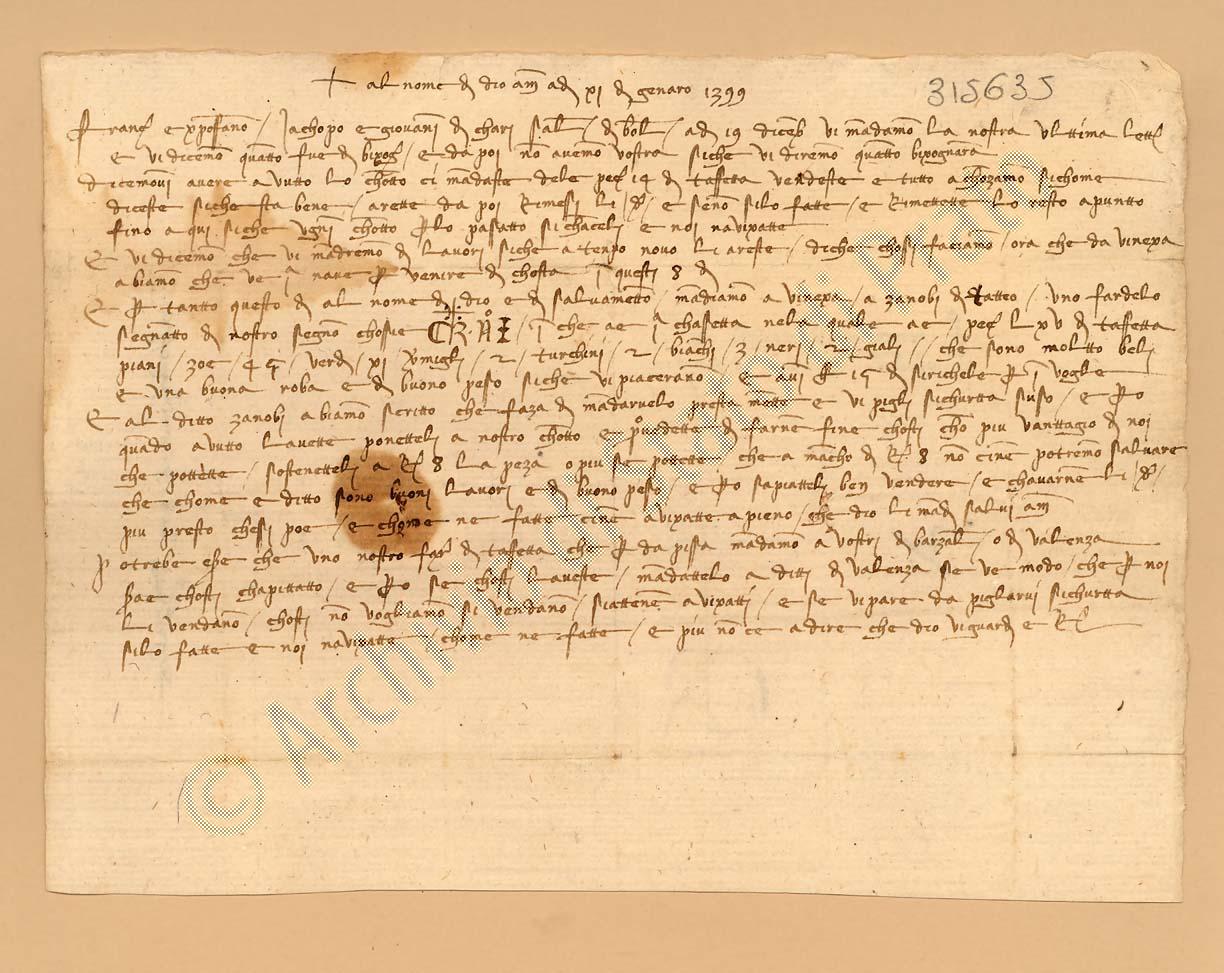 + al nome d dio am ad xi d genaro 1399
315635
Franc e xpofano / Jachopo e giovani d chari Sal d bol / ad 19 diceb vi madamo la nostra ulttima lett
e vi dicemo quatto fue d bixog / e da poi no avemo vostra siche vi diremo quatto bixognara
dicemovi avere avutto lo chotto ci madaste dele pec 14 d taffetta vendeste e tutto achozamo sichome
diceste siche sta bene / arette da poi Rimessi li / e seno silo fatte / e Rimettette lo resto apuntto
fino a qui siche ugni chotto plo pasatto si chaceli e noi navixatte
E vi dicemo che vi madremo d lavori siche a tenpo novo li areste / diche chossi faciamo / ora che da vinexa
abiamo che ve i nave p venire d chosta i questi 8 d
E p tantto questo d al nome d dio e d salvametto / madiamo a vinexa / a zanobi d tatteo / uno fardelo
segnatto d nostro segno chossie / i che ae i chassetta nela quale ae / pec lxv d taffetta
piani / zoe / 45 / verd / xi vmigli / 2 / turchini / 2 / biachi / 3 / neri / 2 / giali // che sono moltto beli
e una buona roba e d buono peso siche vi piacerano / e avi p 15 d sirichele p i vogle
E al ditto zanobi abiamo scritto che faza d madarvelo presta mette e vi pigli sichurtta suso / e po
quado avutto lavette ponetteli a nostro chotto e pvedette d farne fine chosti cho piu vanttagio d noi
che pottette / sostenetteli a f 8 la peza o piu se pottette / che a macho d f 8 no cine potremo salvare
che chome e ditto sono buoni lavori e d buono peso / e po sapiatteli ben vendere / e chavarne li /
piu presto chessi poe / e chome ne fatte cine avixatte apieno / che dio li mad salvi am
Potrebe ese che uno nostro far d tafetta che p da pissa madamo a vostri d barzal / o d valenza
sae chosti chapittatto / e po se chosti laveste / madattelo a ditti d valenza se ve modo / che p noi
li vendano / chosti no vogliamo si vendano / siattene avixatti / e se vi pare da piglarvi sichurtta
silo fatte e noi navixatte / chome ne fatte / e piu no ce a dire che dio vi guard e
© Archivio di Stato di Prato